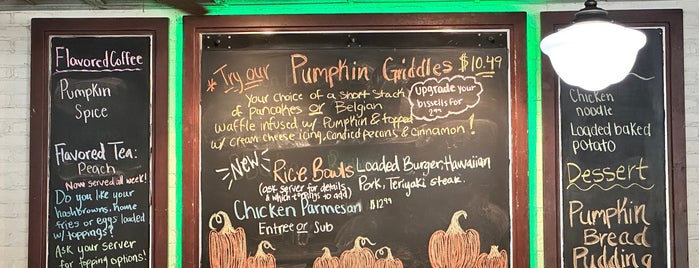 Flavored Coffee
Pumpkin
Spice
Flavored Tea:
Peach
Now served all week!
Do you like your
hashbrowns, home
fries or eggs loaded
w/toppings?
Ask your server
for topping options!
*Try our Pumpkin Griddles $10.49
Your choice of a short stack
of pancakes or Belgian
waffle infused w/ Pumpkin & topped
w/ cream cheese icing, candied pecans & cinnamon!
upgrade your
bissells for
2.99
New
Rice Bowls Loaded Burger, Hawaiian
(ask server for details Pork, Teriyaki steak.
& which toppings to add)
Chicken Parmesan $12.99
Entree or Sub
Chicken
noodle
Loaded baked
potato
Dessert
Pumpkin
Bread
Pudding